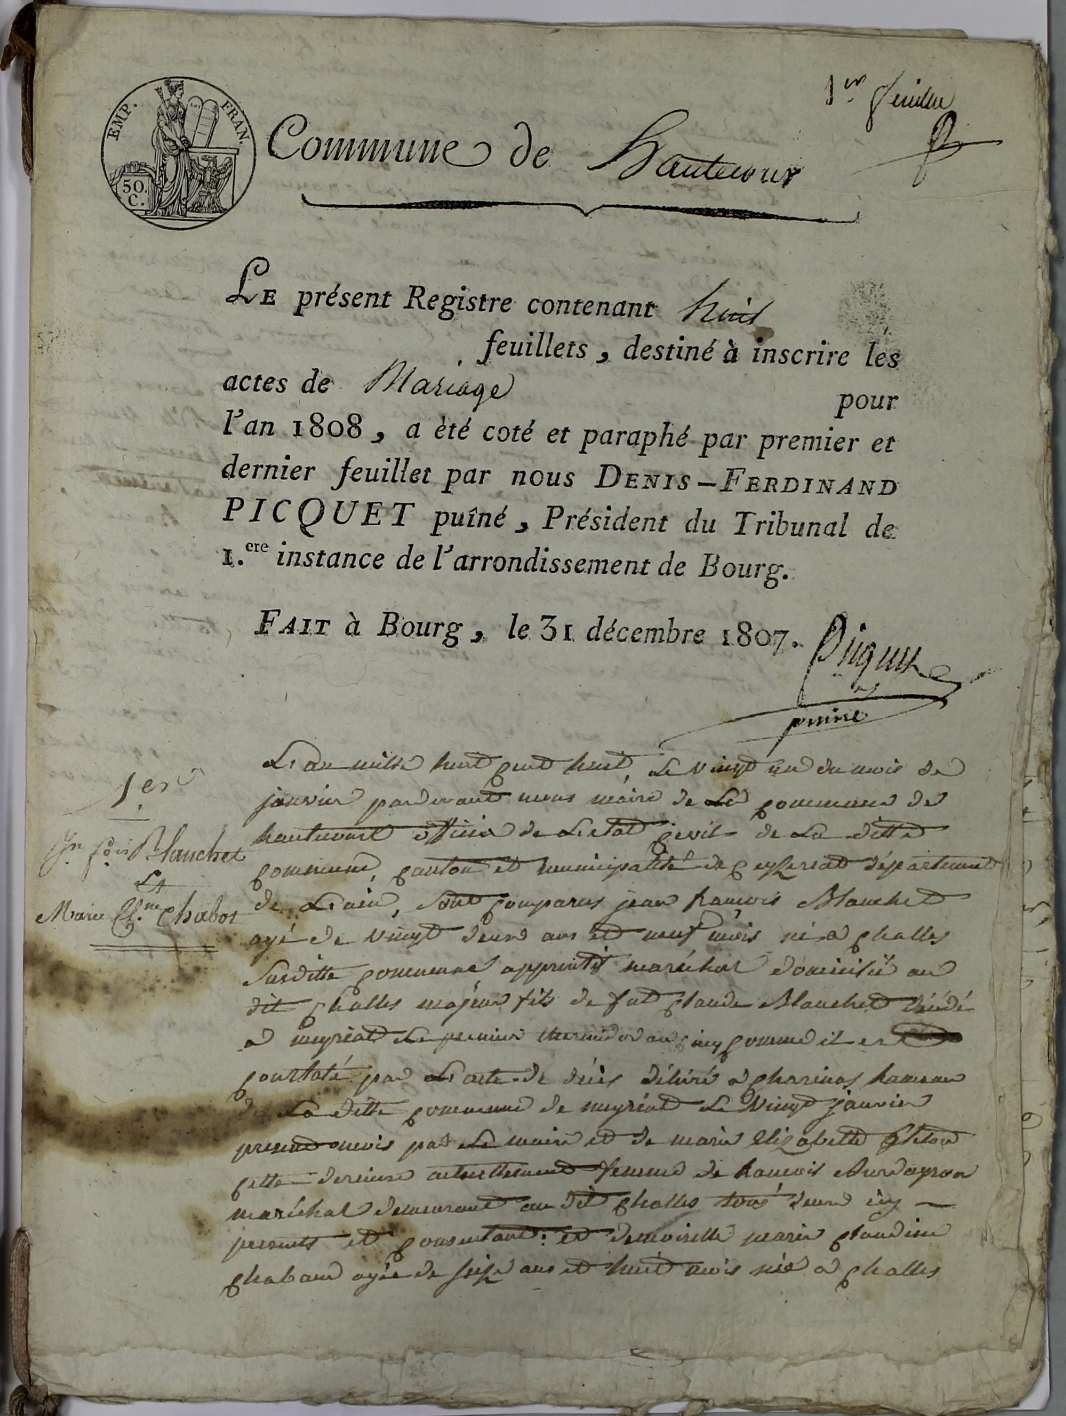 1er feuillet
EMP. FRAN.
50. C.
Commune de hautecour
LE présent Registre contenant huit
feuillets, destiné à inscrire les
actes de Mariage pour
l'an 1808, a èté coté et paraphé par premier et
dernier feuillet par nous DENIS-FERDINAND
PICQUET puîné, Président du Tribunal de
1.ere instance de l'arrondissement de Bourg.
FAIT à Bourg, le 31 décembre 1807.
Picquet
puiné
1er
Jn fois Blanchet
Et
Marie Cl.ne Chabot
L'an mille huit cent huit, Le vingt un du mois de
janvier pardevant nous maire de La commune de
hautecourt officier de L'etat civil de La ditte
commune, canton et municipalité de ceyzeriat département
de L'ain, sont comparus jean francois Blanchet
agé de vingt deux ans et neuf mois né a challes
Susditte commune apprentif maréchal domicilié au
dit challes majeur fils de fut claude Blanchet décédé
a meyriat Le premier thermidor an cinq comme il est
constaté par L'acte de décès délivré a charinas hameau
de La ditte commune de meyriat Le vingt janvier
present mois par Le maire et de marie Elizabeth
cette derniere actuellement femme de francois
maréchal demeurant au dit challes tous deux icy
presents et consentant: et demoiselle marie claudine
chaband agée de seize ans et huit mois née a challes